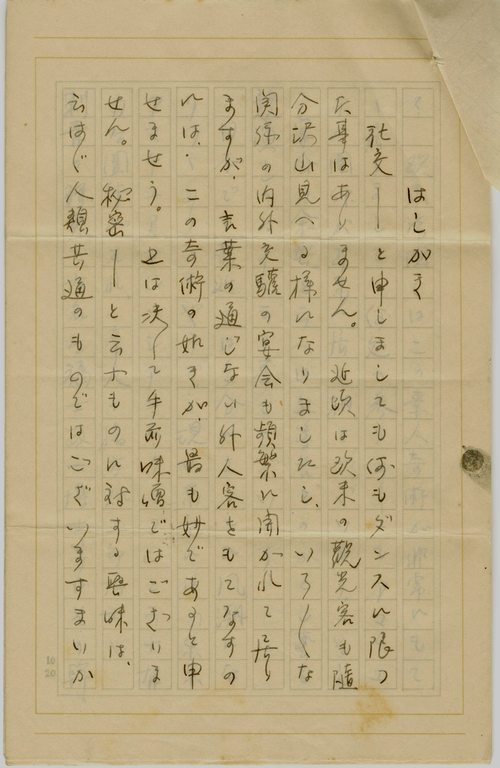 はしがき
社交――と申しましても何もダンスに限つ
た事はありません。近頃は欧米の観光客も随
分沢山見へる様になりましたし、いろ〳〵な
関係の内外交驩の宴会も頻繁に開かれて居り
ますが、言葉の通じない外人客をもてなすの
には、この奇術の如きが、最も妙であると申
せませう。之は決して手前味噌ではござりま
せん。秘密――と云ふものに対する興味は、
云はゞ人類共通のものではございますまいか
10
20